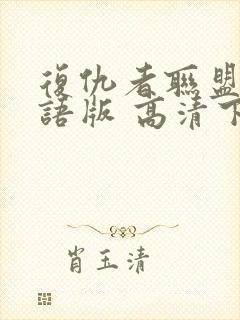 復仇者聯盟
語版 高清下
肖玉清